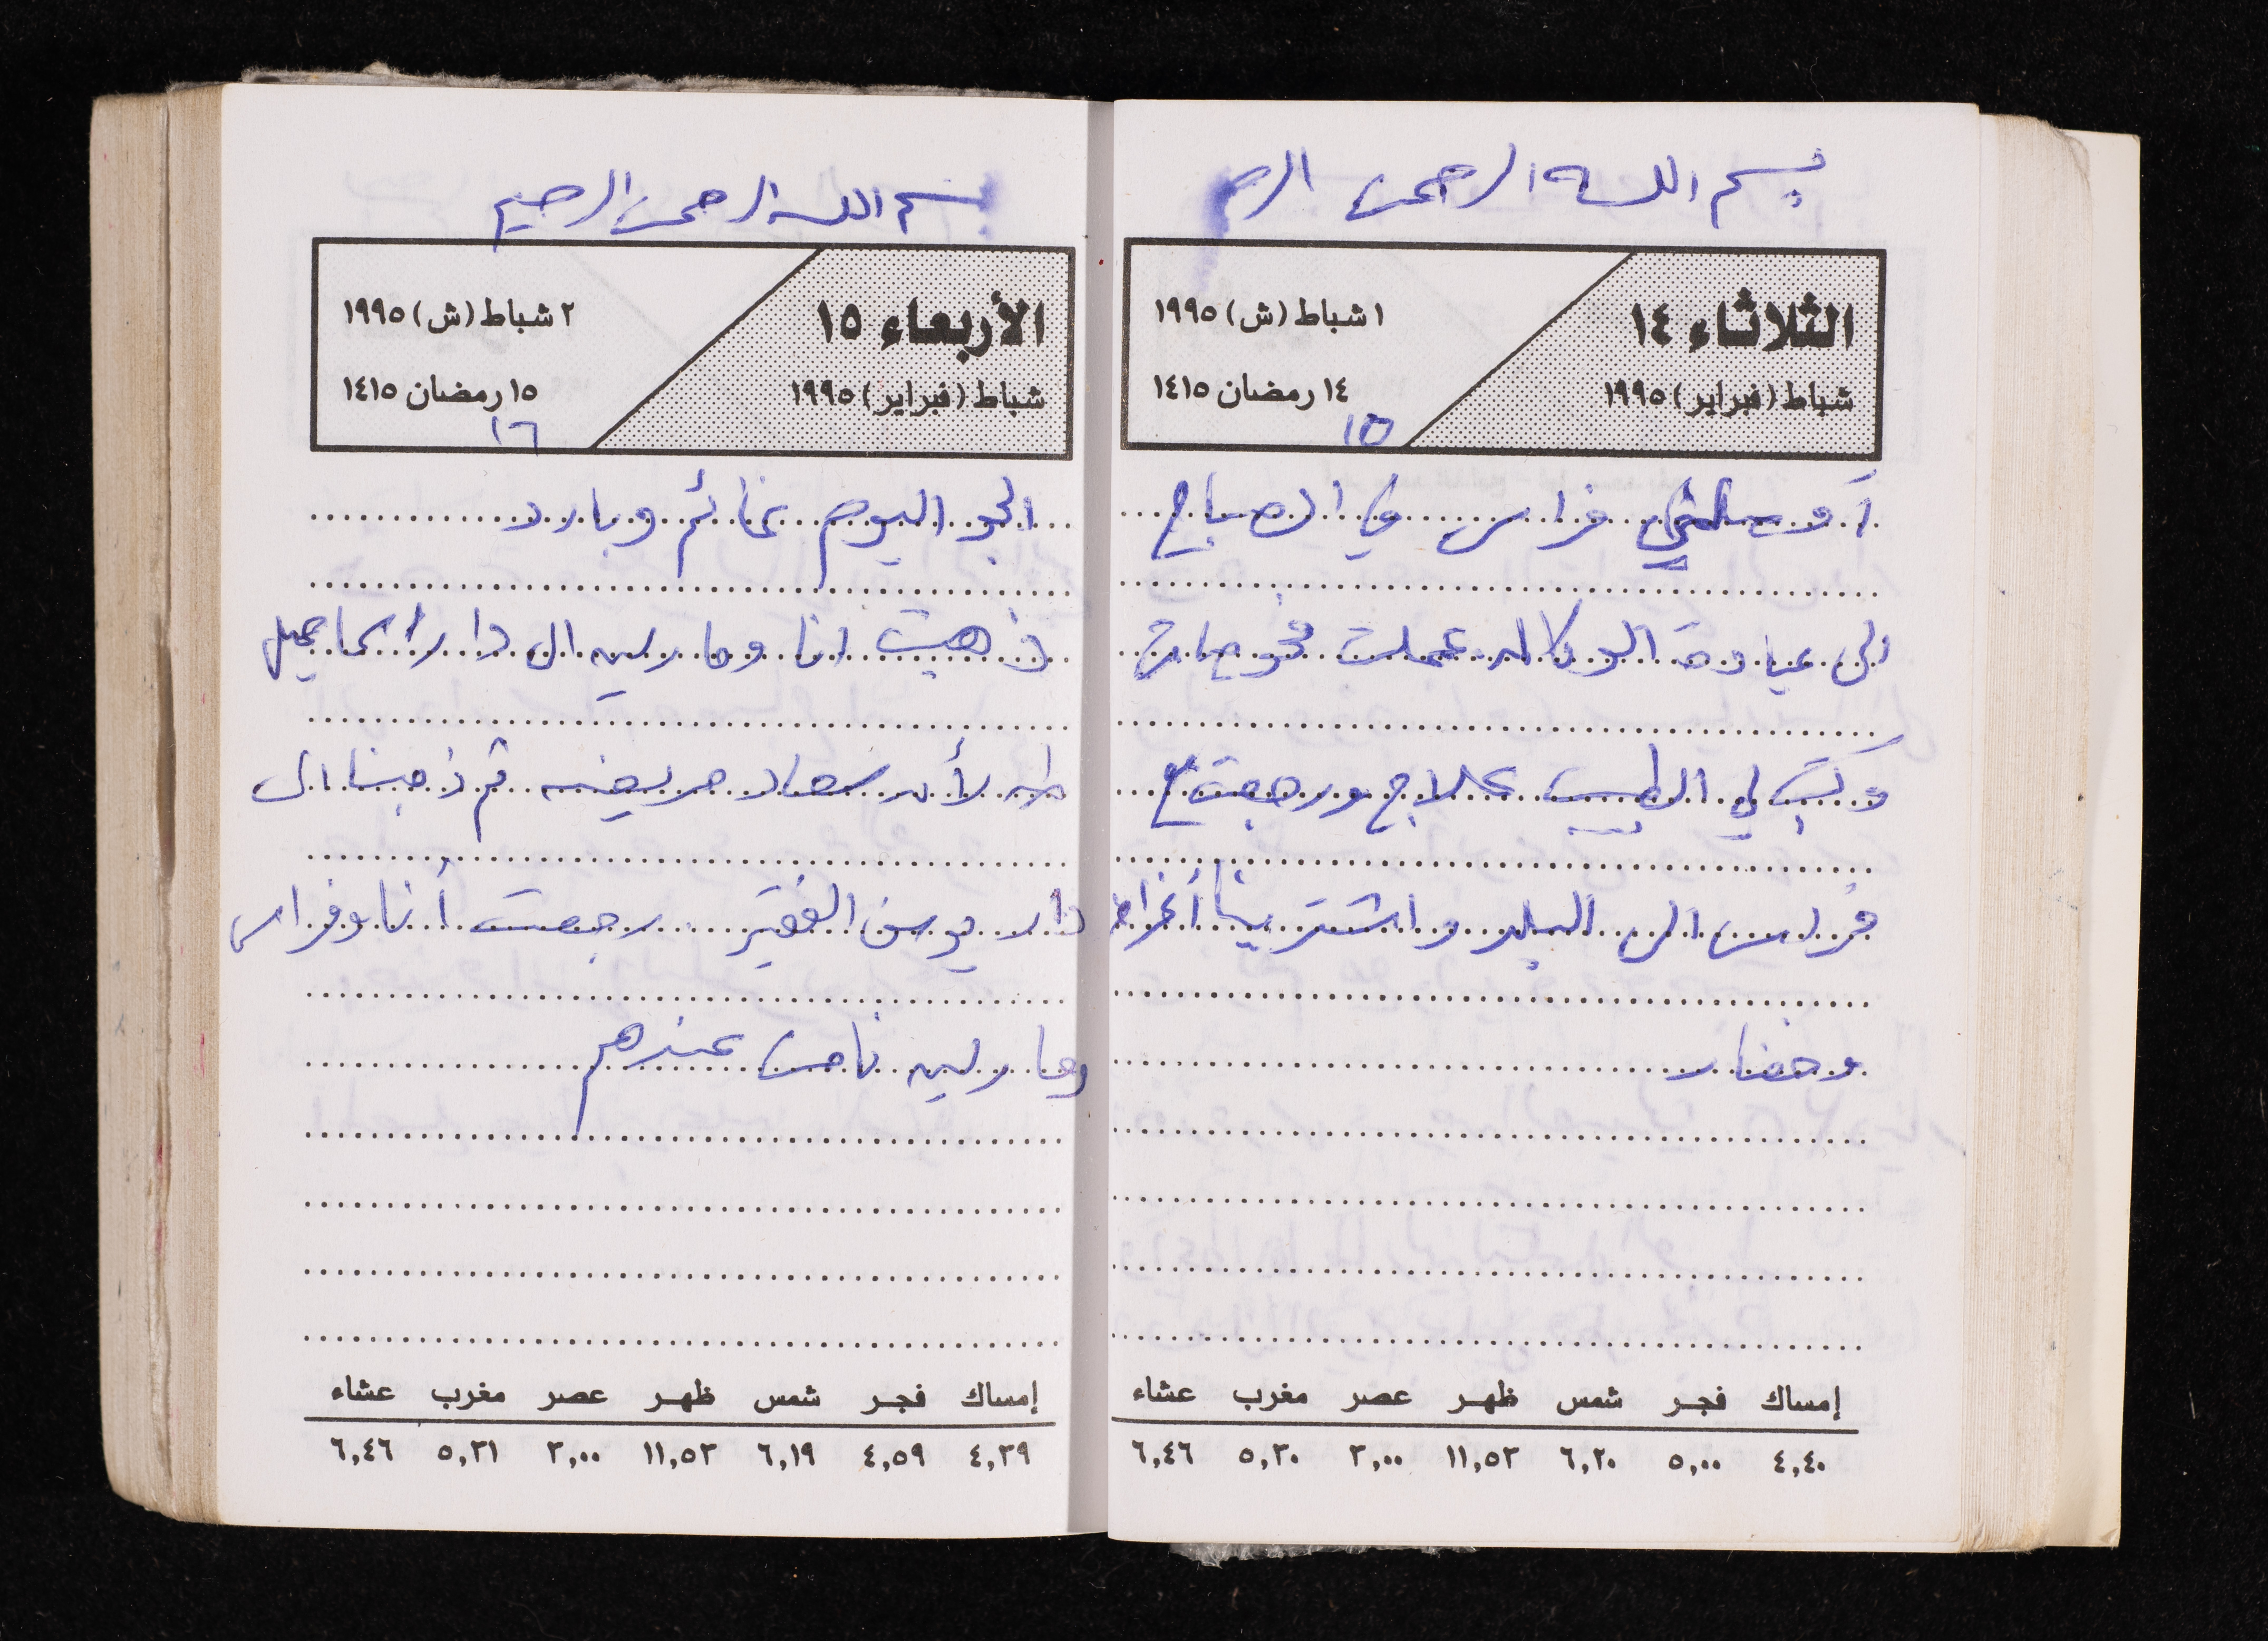 بسم الله الرحمن الرحـ
الثلاثاء ١٤
شباط (فبراير) ١٩٩٥
١ شباط (ش) ١٩٩٥
١٤ رمضان ١٤١٥
١٥
أوصلني فراس في الصباح
الى عيادة الوكاله عملت فحوصات
وكتب لي الطبيب علاج ورجعت مع
فراس الى البلد واشترينا أغراض
وخضار
إمساك فجر شمس ظهر عصر مغرب عشاء
٤,٤٠ ٥,٠٠ ٦,٢٠ ١١,٥٢ ٣,٠٠ ٥,٣٠ ٦,٤٦
بسم الله الرحمن الرحيم
الأربعاء ١٥
شباط (فبراير) ١٩٩٥
٢ شباط (ش) ١٩٩٥
١٥ رمضان ١٤١٥
١٦
الجو اليوم غائم وبارد
ذهبت انا وماريه الى دار اسماعيل
طه لأن سعاد مريضه ثم ذهبنا الى
دار يوسف الفقير رجعت أنا وفراس
وماريه نامت عندهم
إمساك فجر شمس ظهر عصر مغرب عشاء
٤,٣٩ ٤,٥٩ ٦,١٩ ١١,٥٢ ٣,٠٠ ٥,٣١ ٦,٤٦